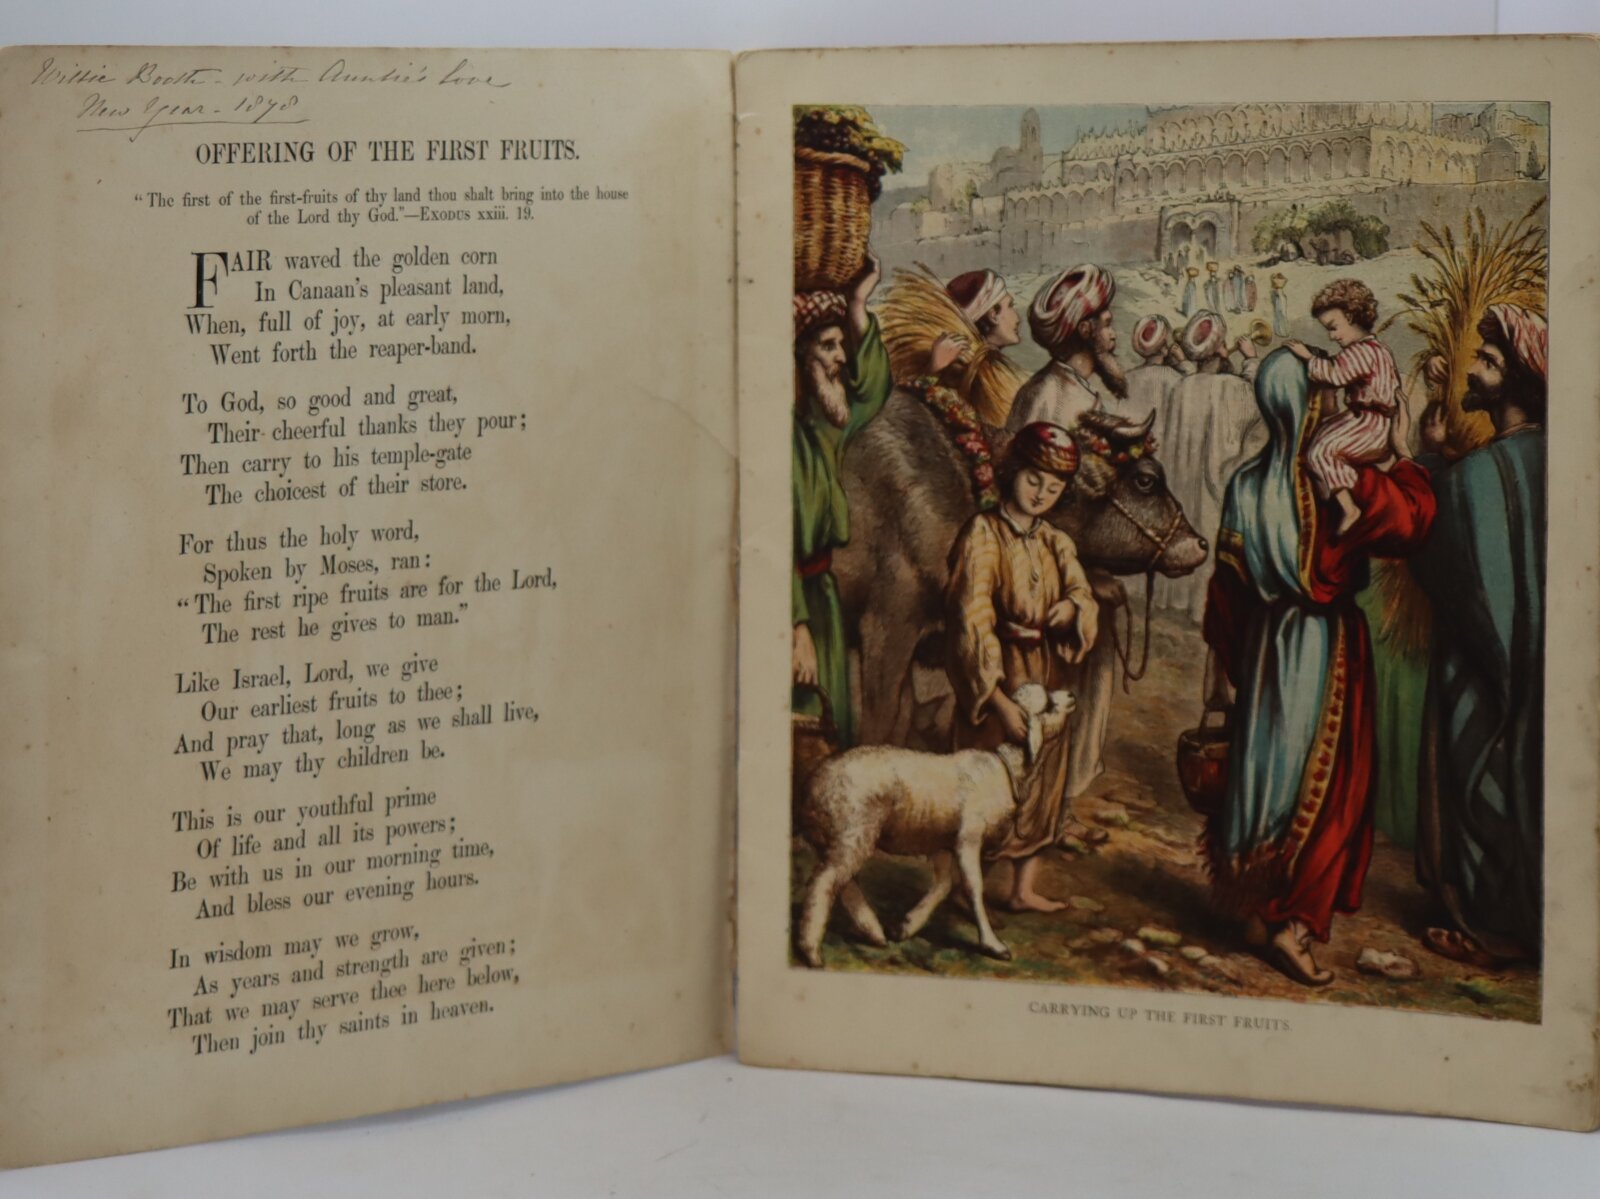 Willie Booth - with Auntie's love
New Year - 1878
OFFERING OF THE FIRST FRUITS.
"The first of the first-fruits of thy land thou shalt bring into the house
of the Lord thy God."—EXODUS xxiii. 19.
FAIR waved the golden corn
In Canaan's pleasant land,
When, full of joy, at early morn,
Went forth the reaper-band.
To God, so good and great,
Their cheerful thanks they pour;
Then carry to his temple-gate
The choicest of their store.
For thus the holy word,
Spoken by Moses, ran:
"The first ripe fruits are for the Lord,
The rest he gives to man."
Like Israel, Lord, we give
Our earliest fruits to thee;
And pray that, long as we shall live,
We may thy children be.
This is our youthful prime
Of life and all its powers;
Be with us in our morning time,
And bless our evening hours.
In wisdom may we grow,
As years and strength are given;
That we may serve thee here below,
Then join thy saints in heaven.
CARRYING UP THE FIRST FRUITS.